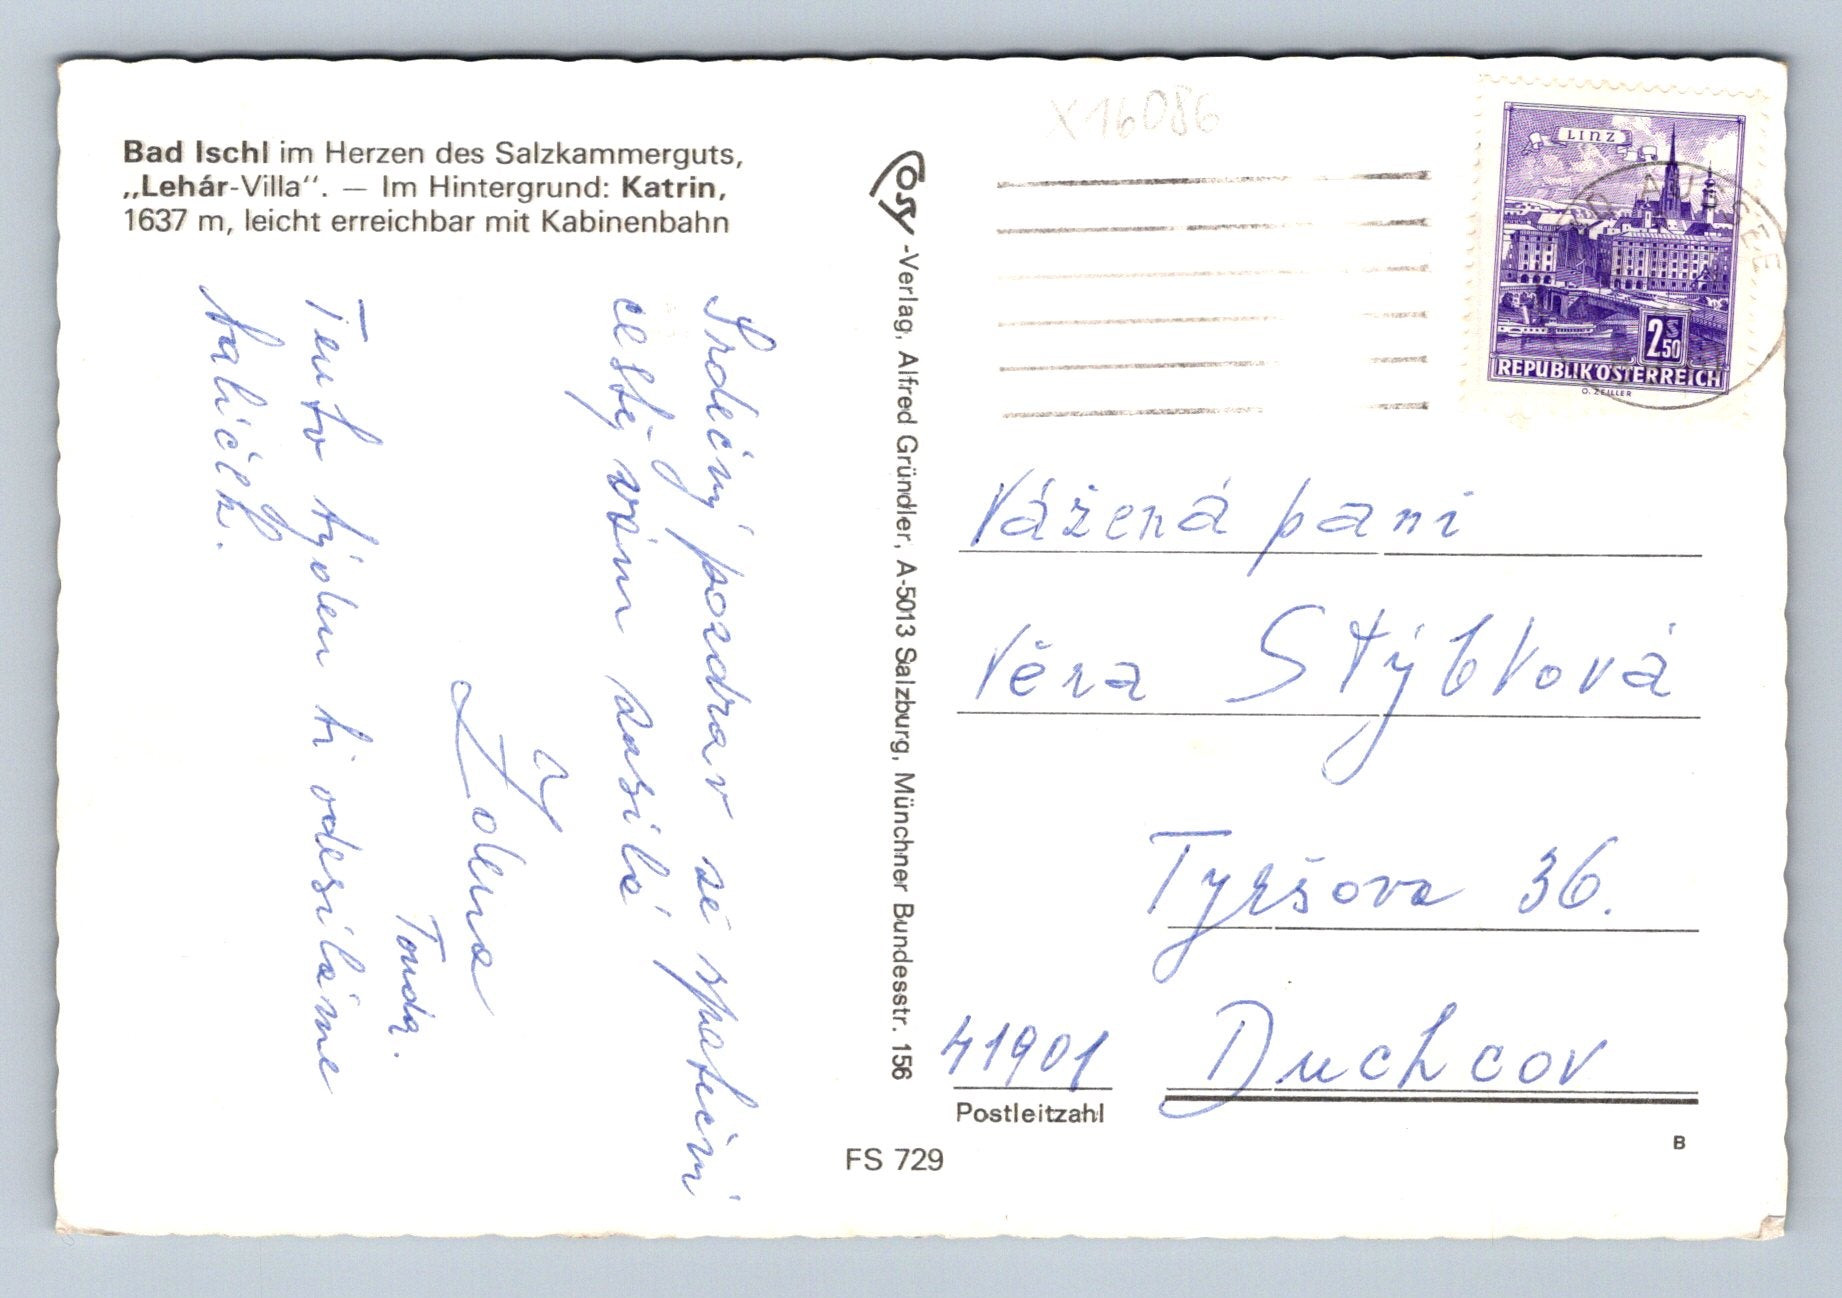 Bad Ischl im Herzen des Salzkammerguts,
„Lehár-Villa“. — Im Hintergrund: Katrin,
1637 m, leicht erreichbar mit Kabinenbahn
Srdečný pozdrav ze zpáteční
cesty vám zasílá
a
Zdena
Tonda.
Tento týden ti odesíláme
balíček.
Cosy-Verlag, Alfred Gründler, A-5013 Salzburg, Münchner Bundesstr. 156
FS 729
X16086
LINZ
2S50
REPUBLIK ÖSTERREICH
O. ZEILLER
Vážená paní
Věra Stýblová
Tyršova 36.
41901 Duchcov
Postleitzahl
B